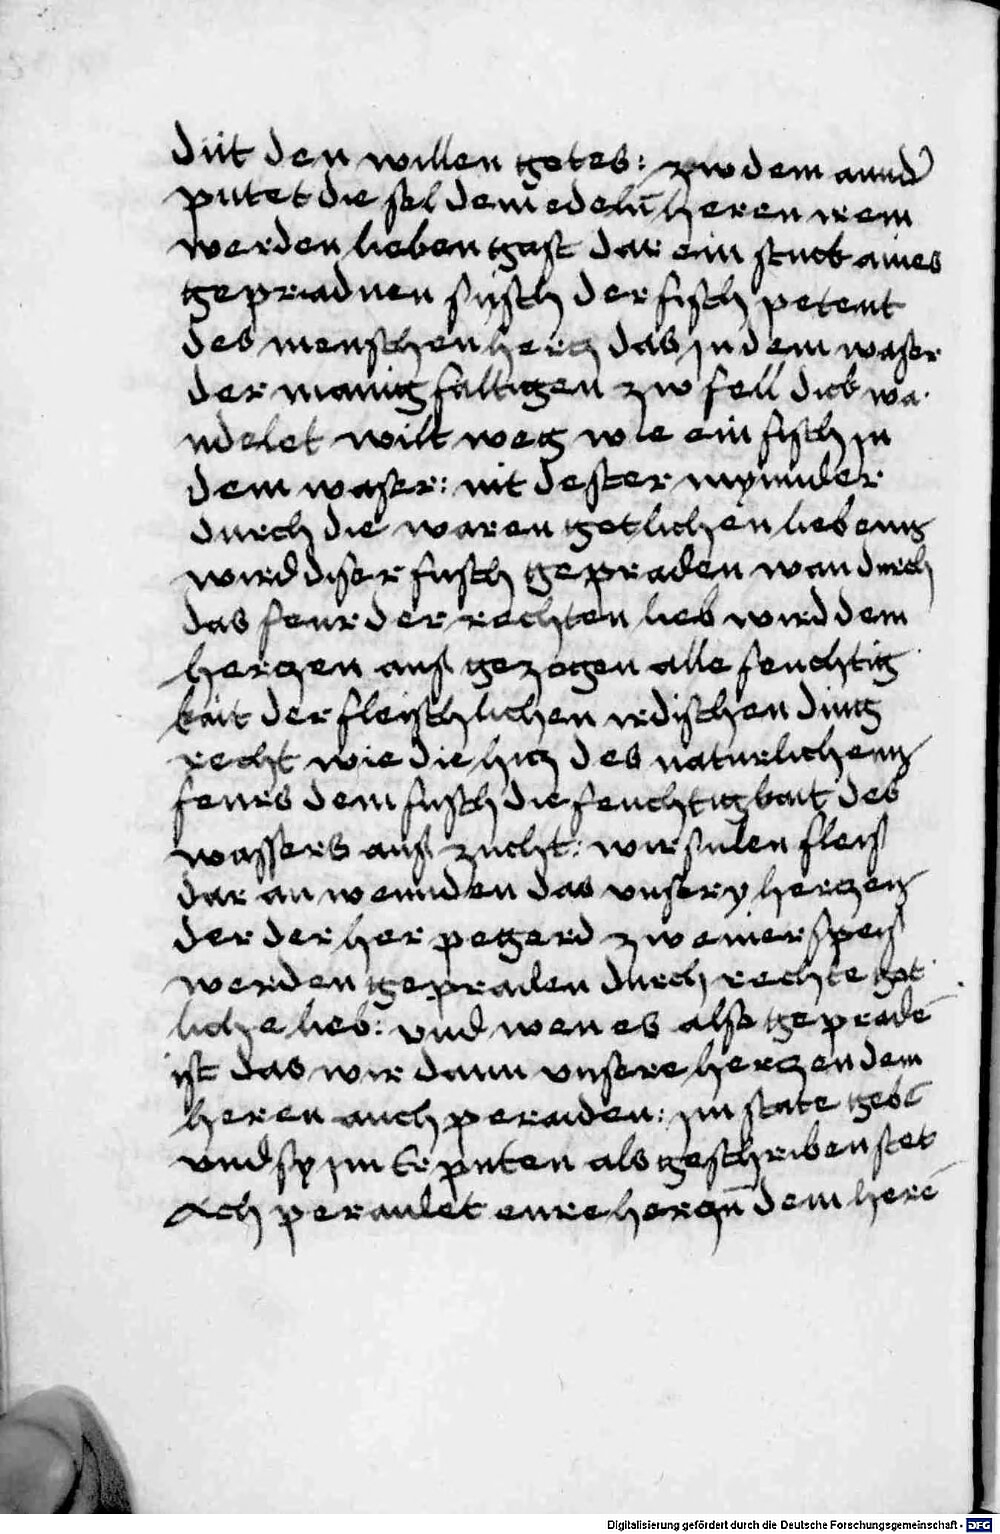 düt den willen gotes: zw dem annd'
putet die sel dem edeln̄ heren irem
werden lieben gast dar ein stuck aines
gepradnen fisch der fisch peteut
des menschen hercz das jn dem waser
der manigfaltigen zw fell dick wa
ndelet wilt weg wie ein fisch jn
dem waser: nit dester mynnder
durch die waren gotlichen lieb
wird diser fisch gepraden wan durch
das feur der rechten lieb wird dem
herczen auß gezogen alle feuchtig
kait der fleischlichen irdischen ding
recht wie die hicz des naturlichenn
feurs dem fisch die feuchtigkait des
wassers auß zucht: wir sulen fleiß
dar an wennden das vnsery herczen
der der her pegerd zw einer speiß
werden gepraden durch rechte got
liche lieb: vnd wen es also geprade͂
ist das wir dann vnsere herczen dem
heren auch peraiden: jm state gebe͂
vnd sy jm Er puten als geschriben stet
Ach peraidet eure herczn̄ dem here͂
Digitalisierung gefördert durch die Deutsche Forschungsgemeinschaft - DFG